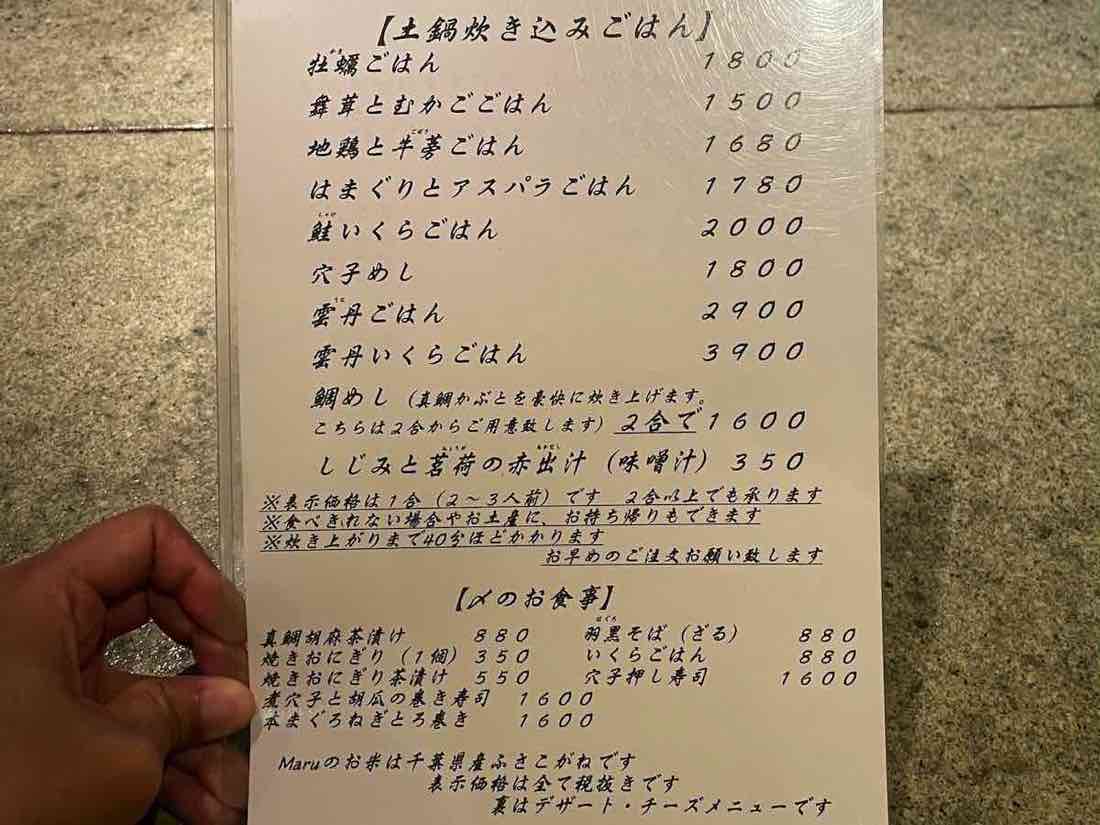 【土鍋炊き込みごはん】
牡蠣ごはん 1800
舞茸とむかごごはん 1500
地鶏と牛蒡ごはん 1680
はまぐりとアスパラごはん 1780
鮭いくらごはん 2000
穴子めし 1800
雲丹ごはん 2900
雲丹いくらごはん 3900
鯛めし（真鯛かぶとを豪快に炊き上げます。
こちらは2合からご用意致します）2合で1600
しじみと茗荷の赤出汁（味噌汁）350
※表示価格は1合（2～3人前）です 2合以上でも承ります
※食べきれない場合やお土産に、お持ち帰りもできます
※炊き上がりまで40分ほどかかります
お早めのご注文お願い致します
【〆のお食事】
真鯛胡麻茶漬け 880 羽黒そば（ざる） 880
焼きおにぎり（1個）350 いくらごはん 880
焼きおにぎり茶漬け 550 穴子押し寿司 1600
煮穴子と胡瓜の巻き寿司 1600
本まぐろねぎとろ巻き 1600
Maruのお米は千葉県産ふさこがねです
表示価格は全て税抜きです
裏はデザート・チーズメニューです